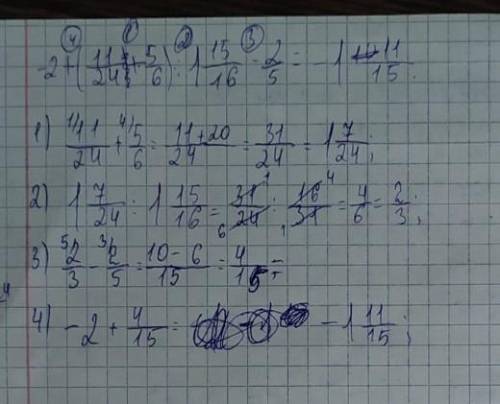 ④ ① ② ③
-2+(11/24+5/6):1 15/16-2/5=-1 11/15
1) 11/24+5/6=11+20/24=31/24=1 7/24;
2) 1 7/24:1 15/16=31/24·16/31=4/6=2/3;
3) 2/3-2/5=10-6/15=4/15;
4) -2+4/15=-1 11/15;